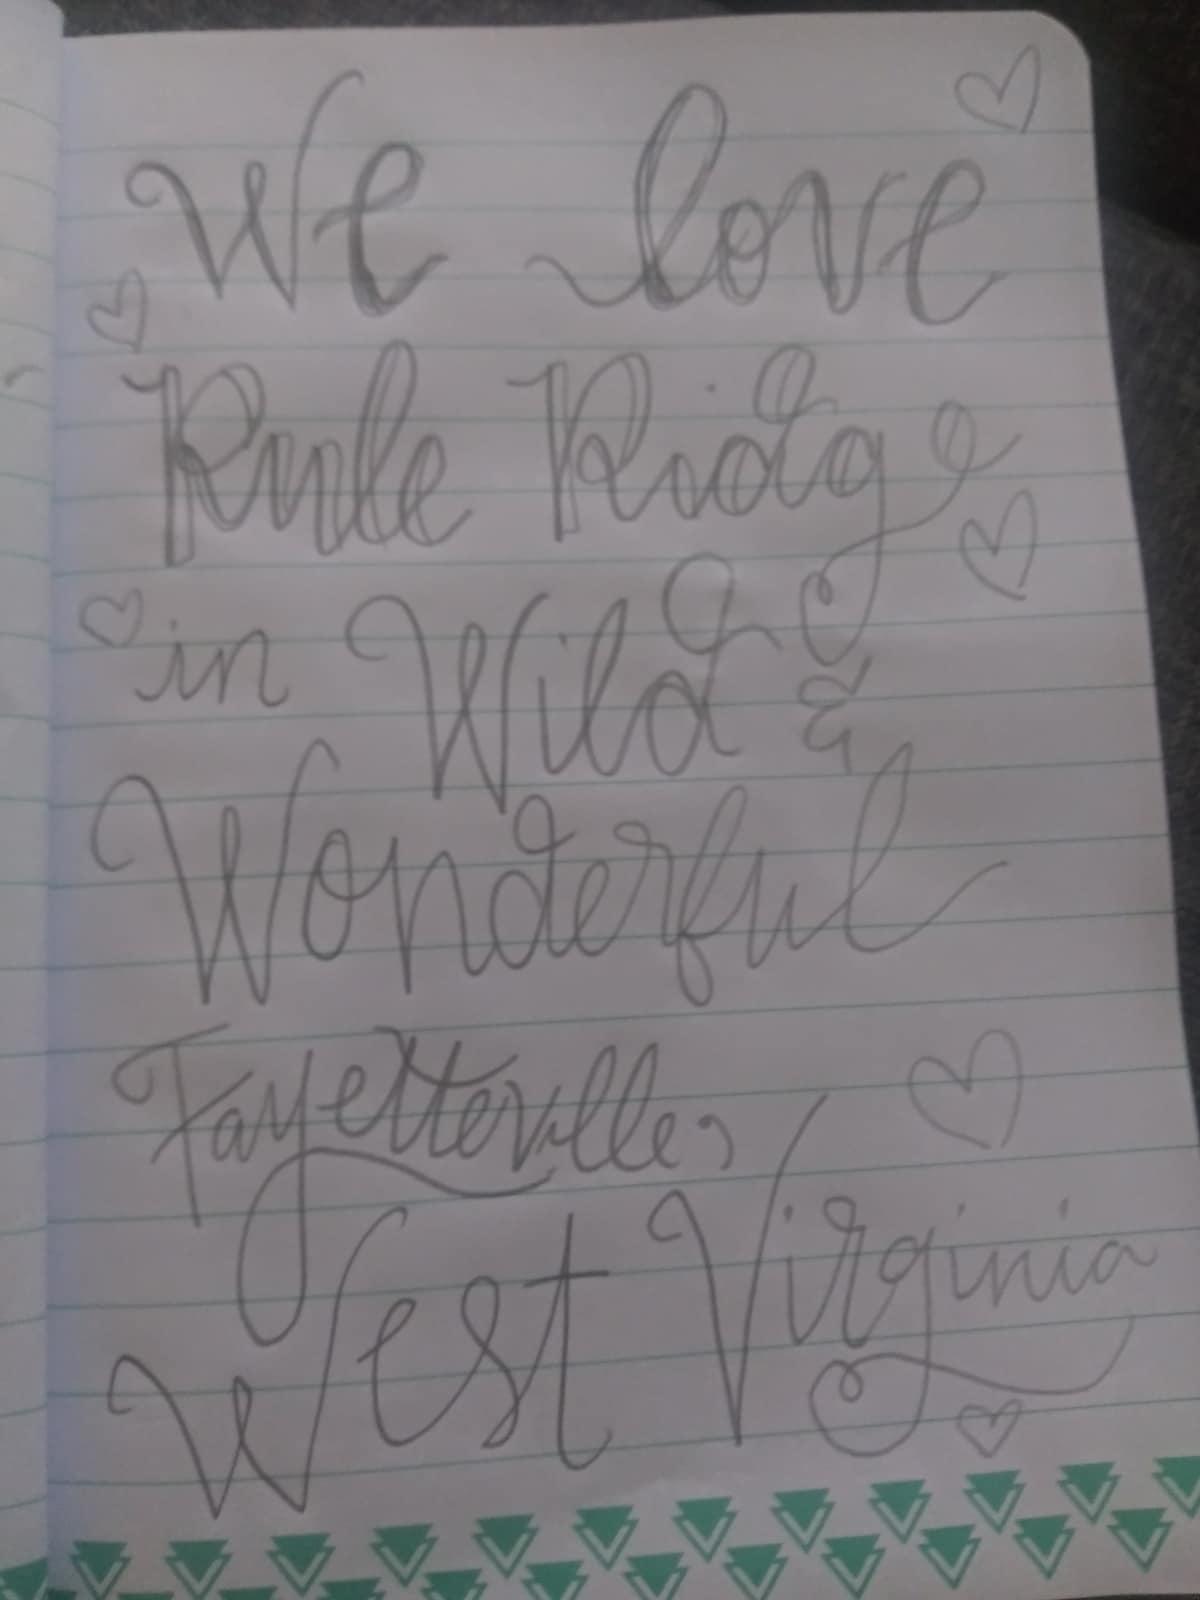 We love
Rule Ridge
in Wild &
Wonderful
Fayetteville,
West Virginia